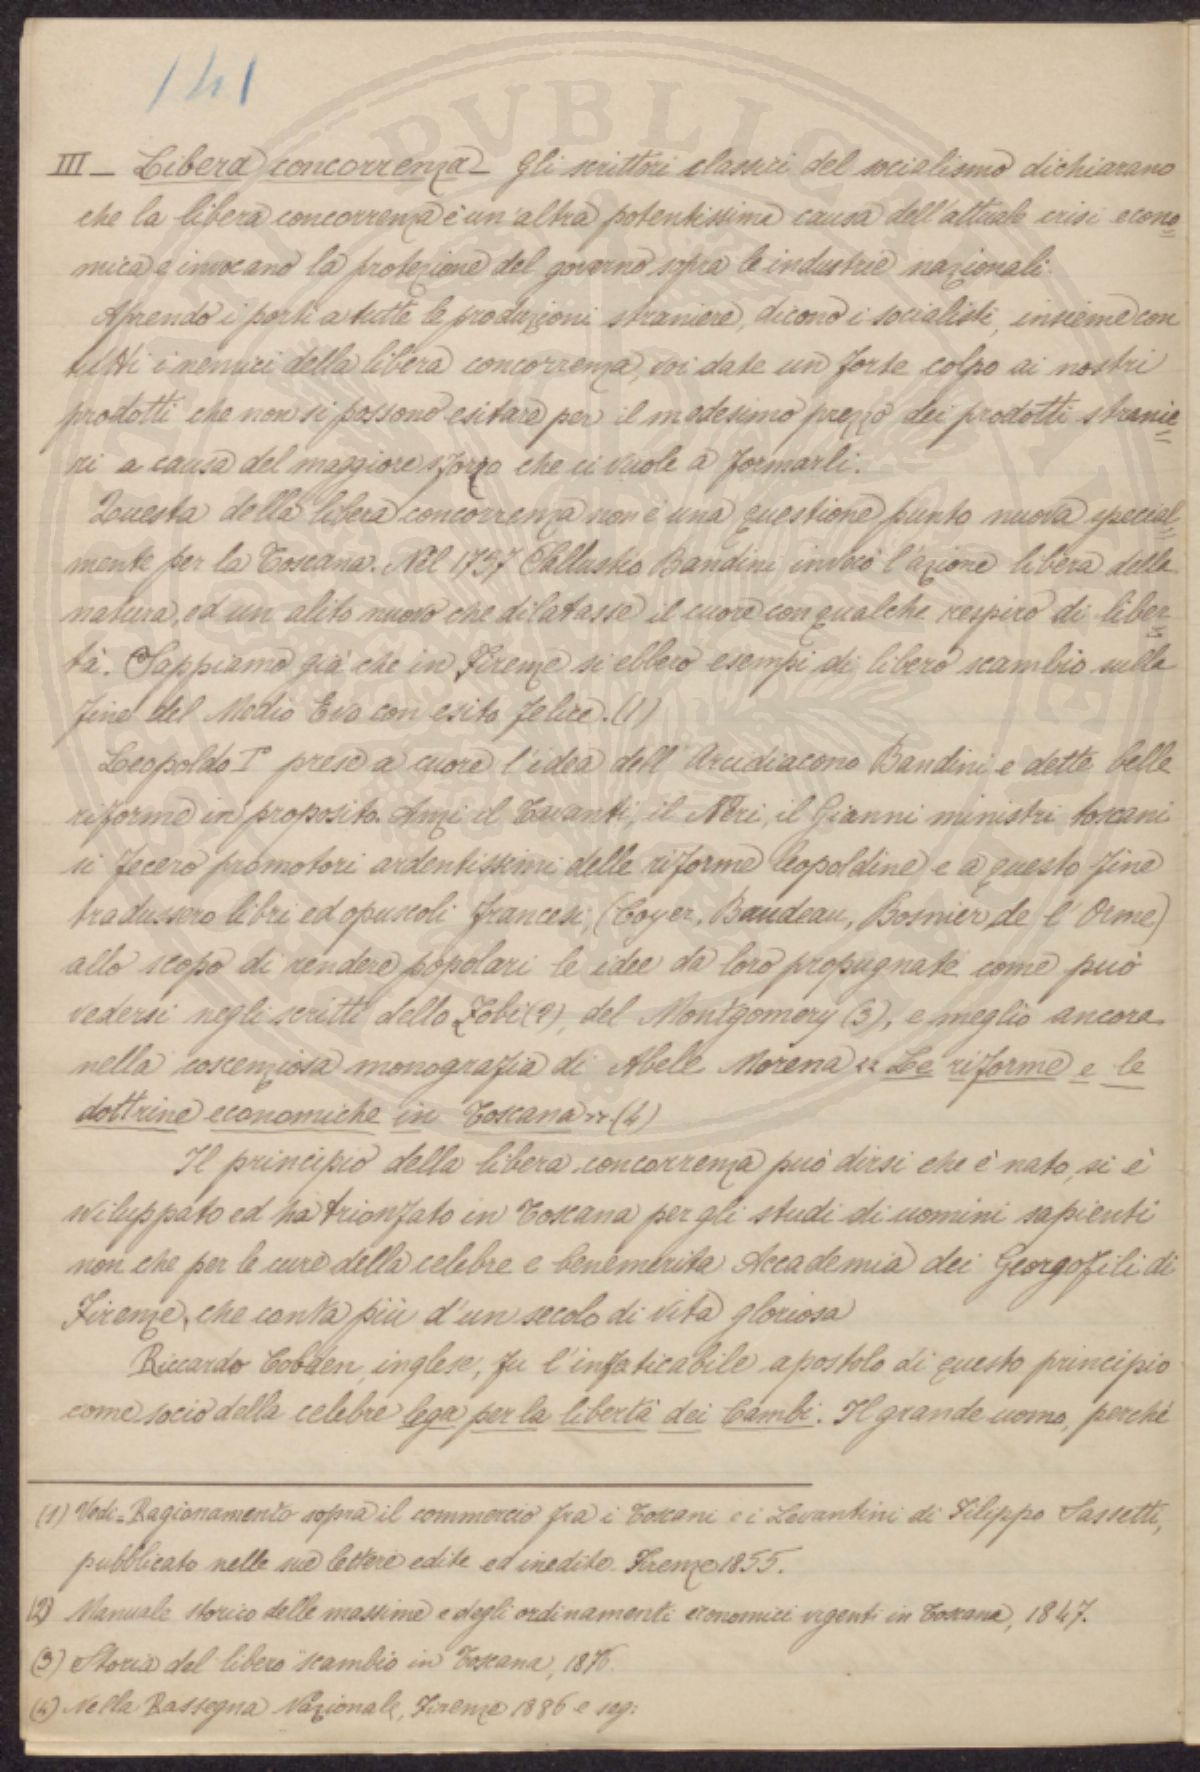 141
III – Libera concorrenza – Gli scrittori classici del socialismo dichiarano
che la libera concorrenza è un'altra potentissima causa dell'attuale crisi econo=
mica e invocano la protezione del governo sopra le industrie nazionali.
Aprendo i porti a tutte le produzioni straniere, dicono i socialisti, insieme con
tutti i nemici della libera concorrenza, voi date un forte colpo ai nostri
prodotti che non si possono esitare per il medesimo prezzo dei prodotti stranie=
ri a causa del maggiore sforzo che ci vuole a formarli.
Questa della libera concorrenza non è una questione punto nuova special=
mente per la Toscana. Nel 1737 Sallustio Bandini invocò l'azione libera della
natura, ed un alito nuovo che dilatasse il cuore con qualche respiro di liber=
tà. Sappiamo già che in Firenze si ebbero esempi di libero scambio sulla
fine del Medio Evo con esito felice. (1)
Leopoldo I° prese a cuore l'idea dell'Arcidiacono Bandini e dette belle
riforme in proposito. Anzi il Tavanti, il Neri, il Gianni ministri toscani
si fecero promotori ardentissimi delle riforme leopoldine e a questo fine
tradussero libri ed opuscoli francesi, (Coyer, Baudeau, Bosnier de l'Orme)
allo scopo di rendere popolari le idee da loro propugnate come può
vedersi negli scritti dello Zobi (2), del Montgomery (3), e meglio ancora
nella coscenziosa monografia di Abele Morena « Le riforme e le
dottrine economiche in Toscana » (4)
Il principio della libera concorrenza può dirsi che è nato, si è
sviluppato ed ha trionfato in Toscana per gli studi di uomini sapienti
non che per le cure della celebre e benemerita Accademia dei Georgofili di
Firenze, che conta più d'un secolo di vita gloriosa
Riccardo Cobden, inglese, fu l'infaticabile apostolo di questo principio
come socio della celebre lega per la libertà dei Cambi. Il grande uomo, perchè
(1) Vedi = Ragionamento sopra il commercio fra i Toscani e i Levantini di Filippo Sassetti,
pubblicato nelle sue lettere edite ed inedite. Firenze 1855.
(2) Manuale storico delle massime e degli ordinamenti economici vigenti in Toscana, 1847.
(3) Storia del libero scambio in Toscana, 1876.
(4) Nella Rassegna Nazionale, Firenze 1886 e seg: